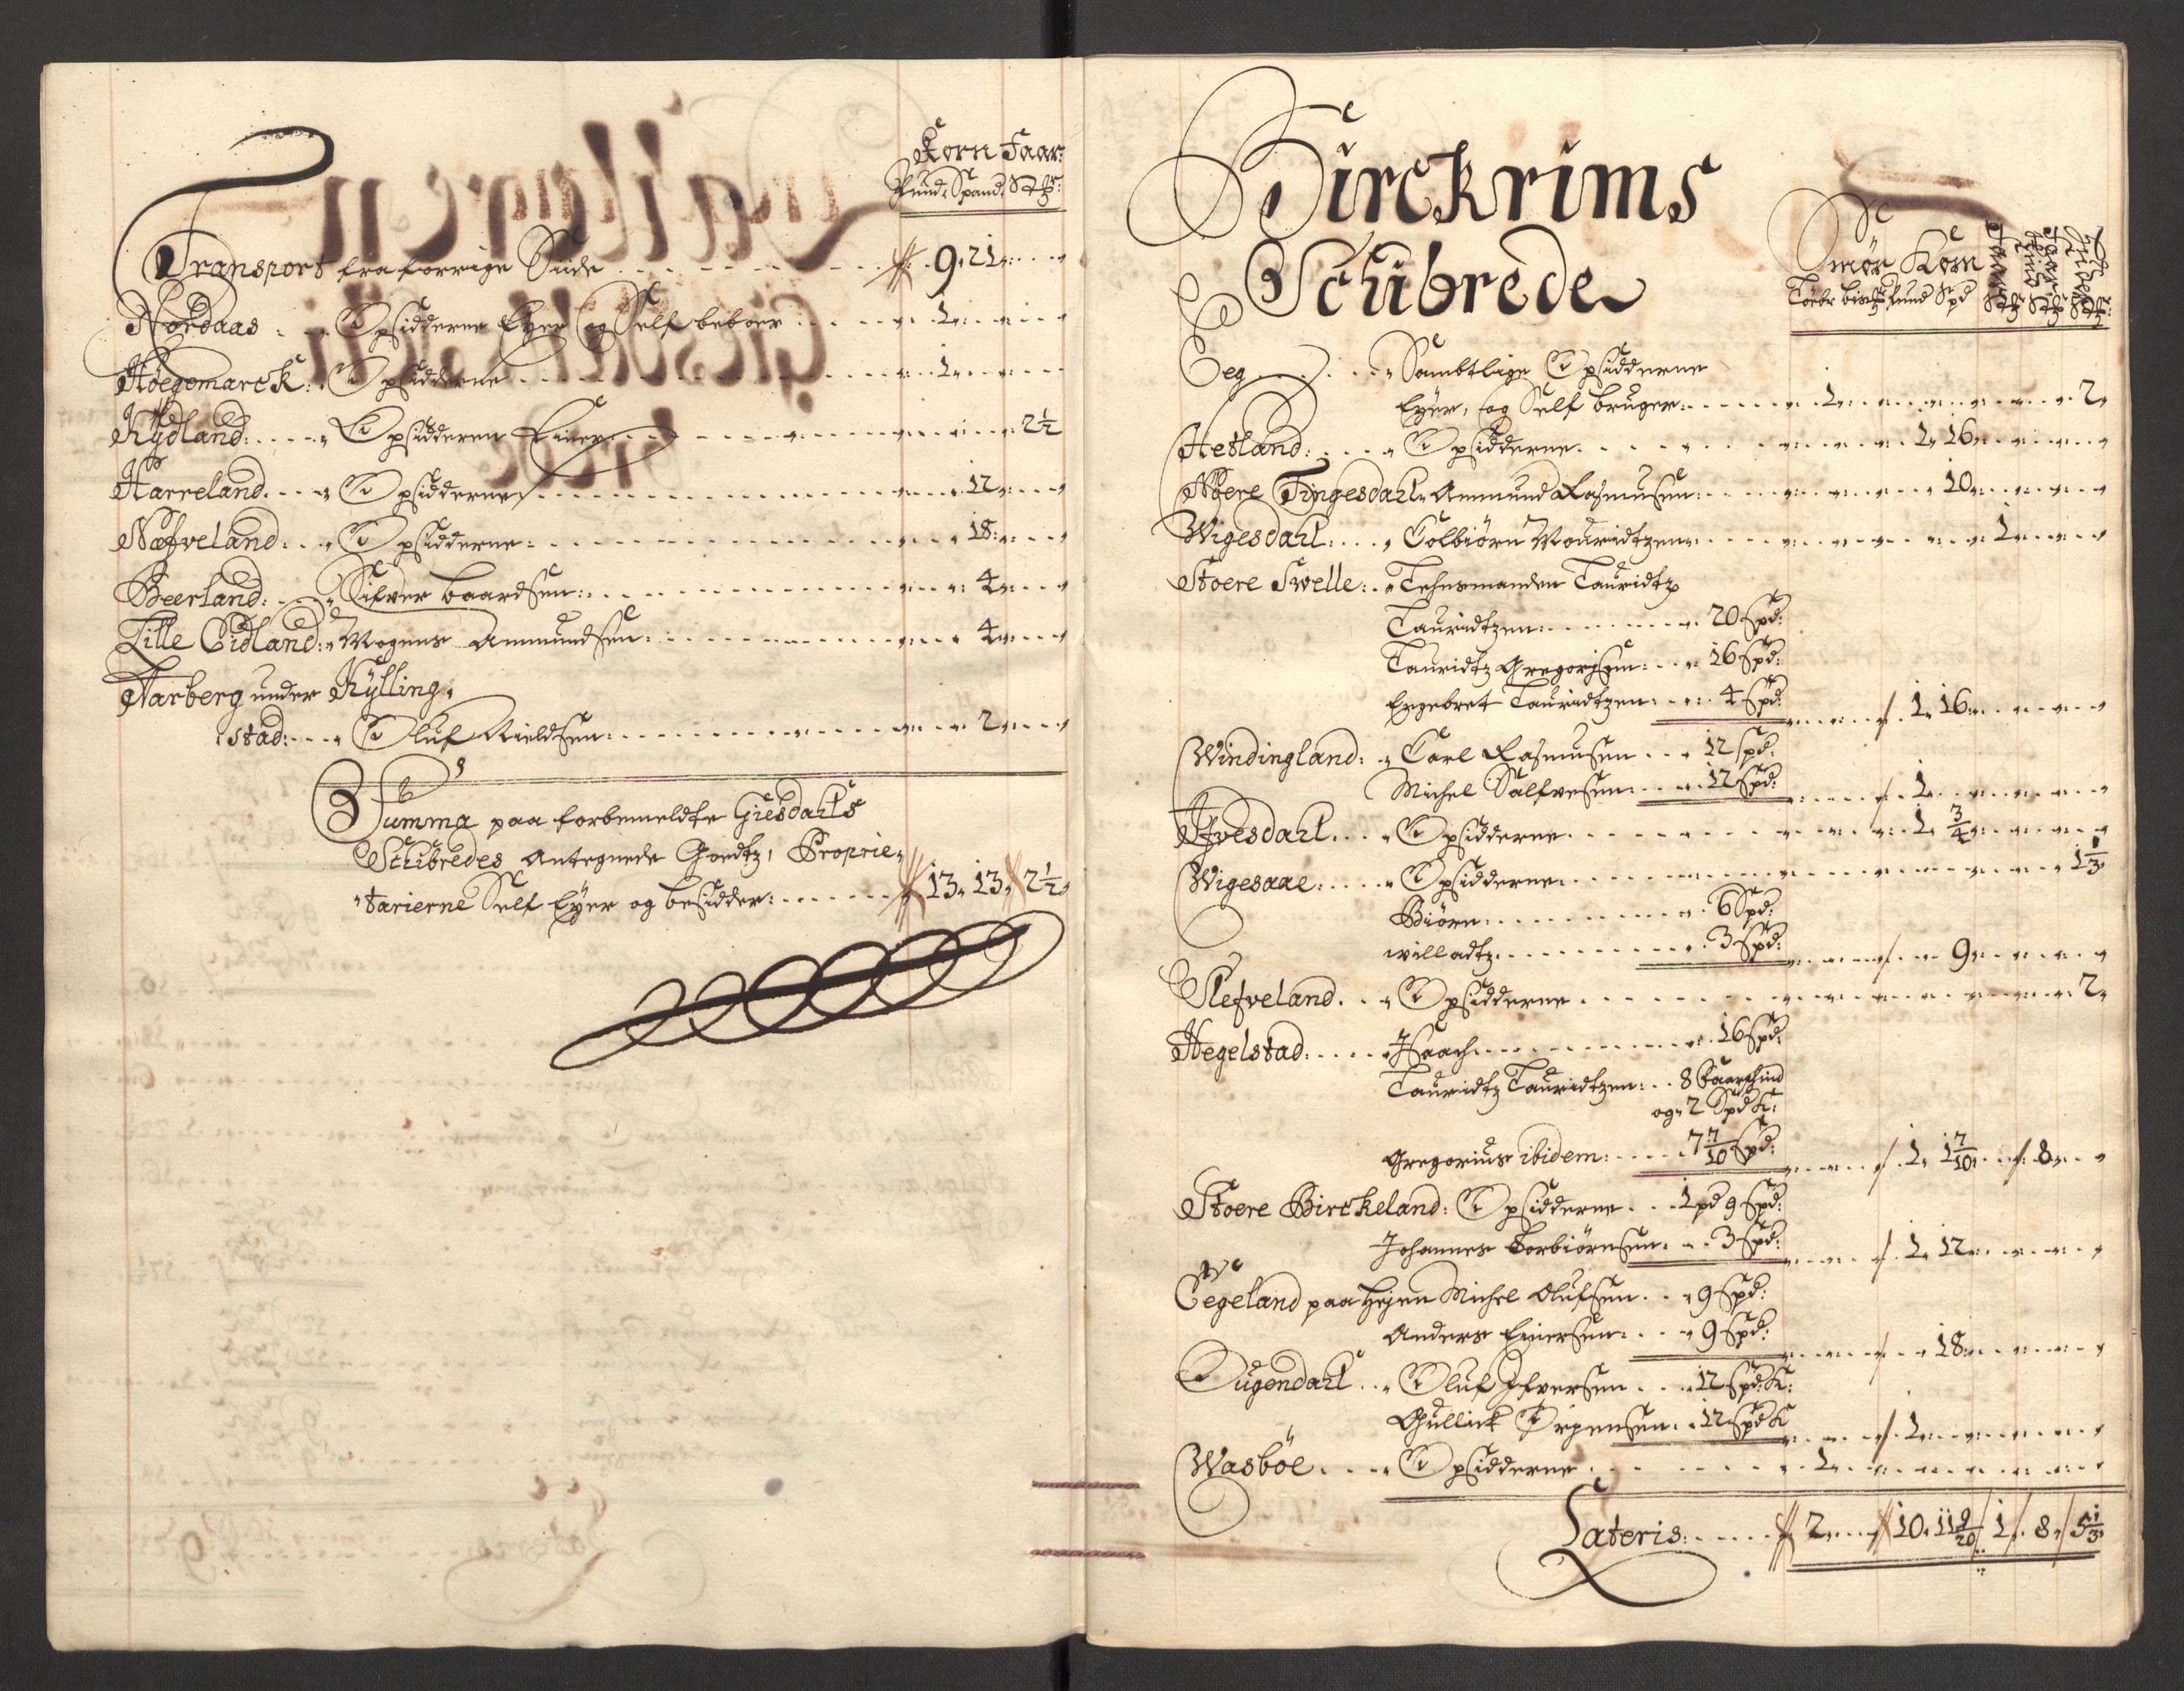 Korn Faar:
Pund: Spand, Stch:
Transport fra forrige Siide . . . 9. 21.
Nordaas . . . Opsidderne Eyer og Self beboer . . . 1.
Høegemarck: Opsidderne . . . 1.
Kydland: . . . Opsidderen Eiier . . . 2½
Harreland . . . Opsidderne . . . 12.
Næfveland . . Opsidderne: . . . 18.
Beerland: . . . Sifver baardsen: . . . 4.
Lille Eidland: Mogens Ammundsen: . . . 4.
Aarberg under Kylling,
stad: . . . Oluf Nieldsen: . . . 2.
Summa paa forbemeldte Giesdahls
Schibredes Antegnede Goedtz, Proprie,
tarierne Self Eyer og besidder: . . . 13. 13. 2½
Birckrims
Schibrede
Smør Korn
Løebr bismr Pund Spd
Eeg . . . Sambtlige Opsidderne
Eyer, og Self bruger: . . . 1. . . . 2.
Hetland: . . . Opsidderne . . . 1. 16.
Nðere Tingesdahl. Ammund Rasmusen: . . . 10.
Wigesdahl: . . . Tolbiørn Mouridtzen: . . . 1.
Stoere Swelle: . . Lehnsmanden Lauridtz
Lauridtzen: . . . 20 Spd:
Lauridtz Gregorisen: . . . 16 Spd:
Engebret Lauridtzen: . . . 4 Spd: . . . 1. 16.
Windingland: . Carl Rasmusen . . . 12 Spd:
Michel Salfvesen: . . . 12 Spd: . . . 1.
Ifvesdahl . . . Opsidderne . . . 1. ¾
Wigesaae: . . . Opsidderne . . . 1⅓
Biørn: . . . 6 Spd:
willadtz . . . 3 Spd: . . . 9.
Slefveland . . . Opsidderne . . . 2.
Hegelstad: . . . Isaach . . . 16 Spd:
Lauridtz Lauridtzen: . . 8 Faarschind
og 2 Spd K:
Gregorius ibidem: . . . 7 7/10 Spd: . . . 1. 1 7/10. . . 8.
Stoere Birckeland: Opsidderne . . . 1 pd 9 Spd:
Johannes Torbiørnsen: . . 3 Spd: . . . 1. 12.
Eegeland paa Heyen Michel Olufsen . . . 9 Spd:
Anders Eiiersen: . . . 9 Spd: . . . 18.
Dugendahl . . Oluf Ifversen . . . 12 Spd: K:
Gullick Ørjensen: . 12 Spd K . . . 1.
Wasbøe . . . Opsidderne . . . 1.
Lateris: . . . 2. . . . 10. 11 9/20 1. 8. 5⅓